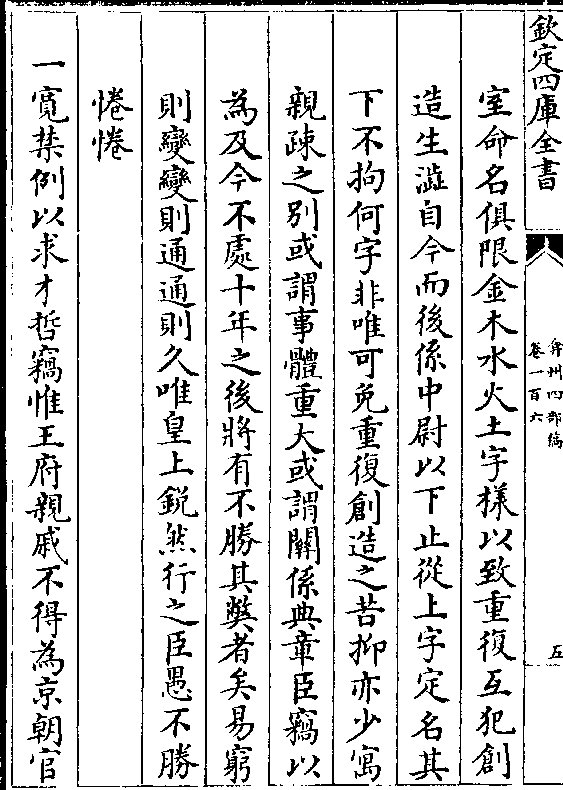 欽定四庫全書
弇州四部稿
卷一百六
五
室命名俱限金木水火土字様以致重復互犯創
造生澁自今而後係中尉以下止從上字定名其
下不拘何字非唯可免重復創造之苦抑亦少寓
親疎之别或謂事體重大或謂關係典章臣竊以
為及今不處十年之後將有不勝其獘者矣易窮
則變變則通通則久唯皇上鋭然行之臣愚不勝
惓惓
一寛禁例以求才哲竊惟王府親戚不得為京朝官